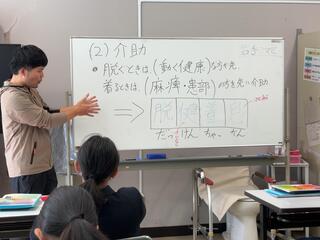 (2) 介助
• 脱ぐときは、(動く健康)な方や先、
着るときは、(麻痺・患部)の方を先に介助
⇒ 脱 健 着 患
だっ けん ちゃっ かん